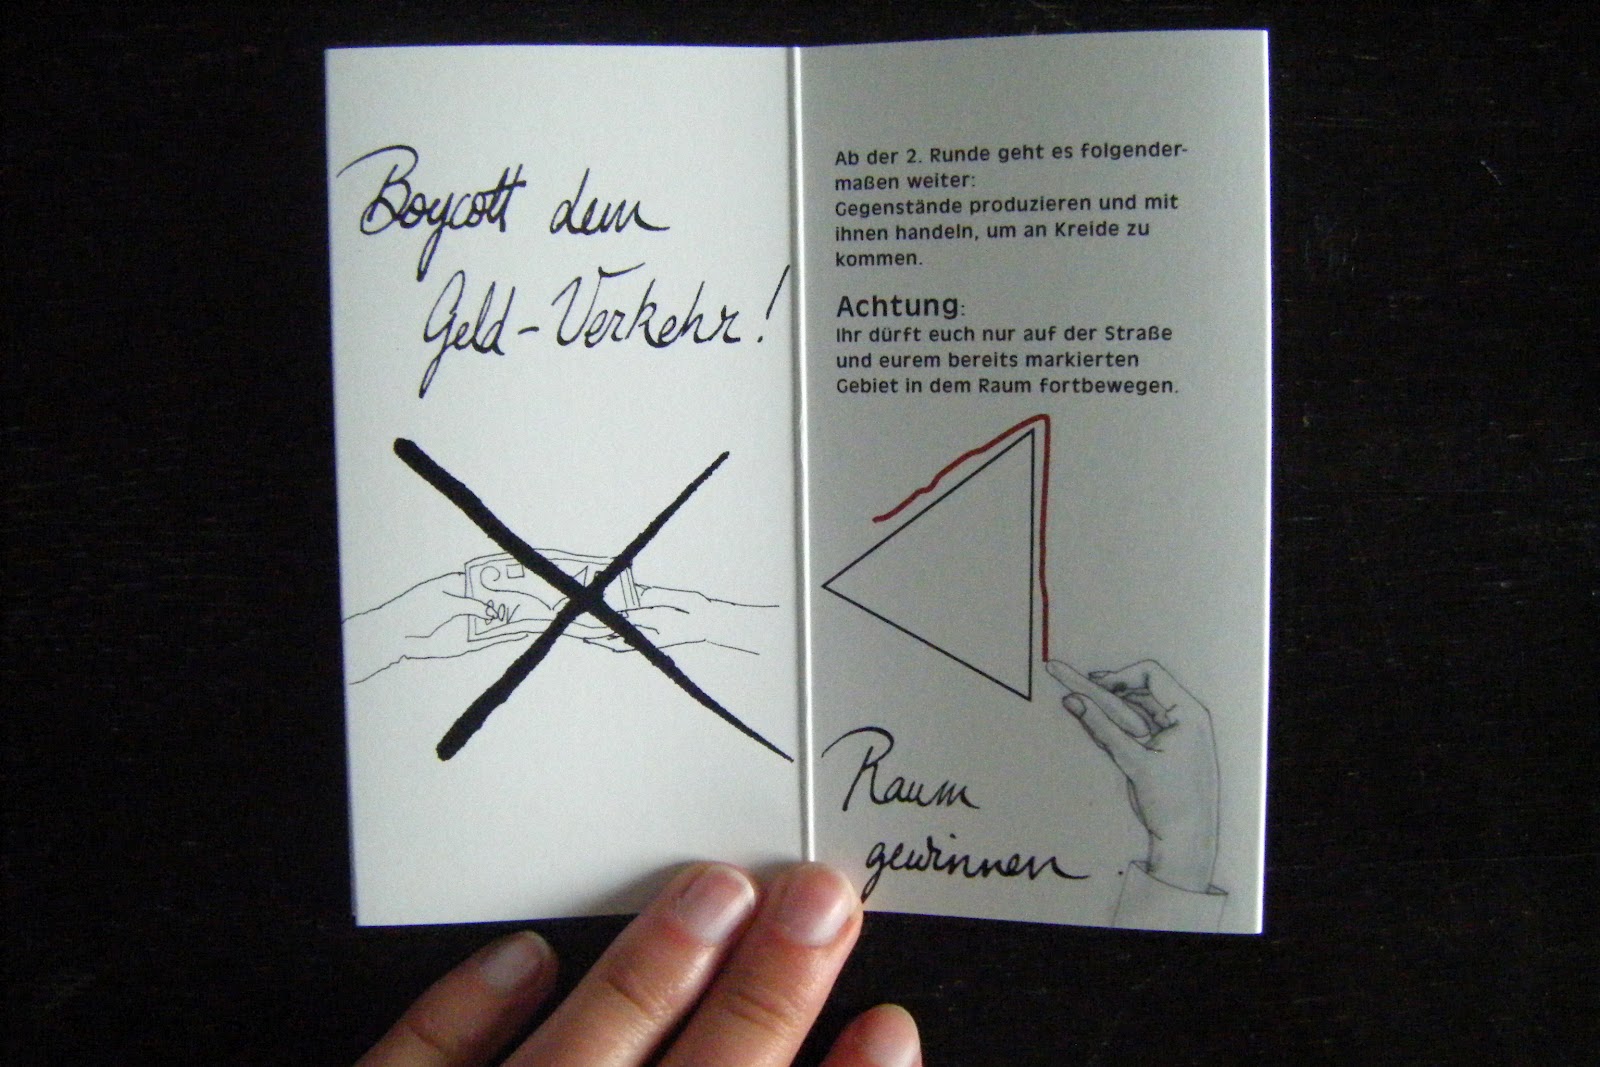 Boycott dem
Geld-Verkehr!
Ab der 2. Runde geht es folgender-
maßen weiter:
Gegenstände produzieren und mit
ihnen handeln, um an Kreide zu
kommen.
Achtung:
Ihr dürft euch nur auf der Straße
und eurem bereits markierten
Gebiet in dem Raum fortbewegen.
Raum
gewinnen.